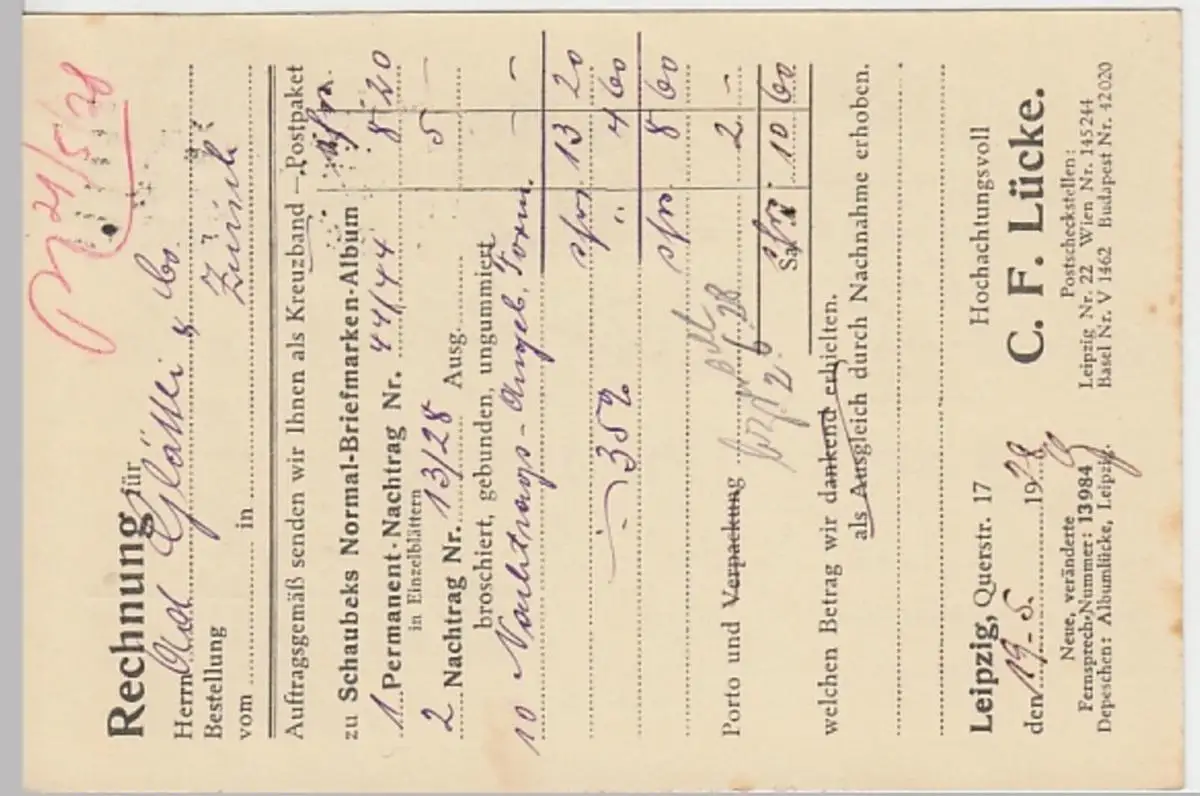 21/5/28
Rechnung für
Herrn Ad. Glättli & Co.
Bestellung Zürich
vom in
Auftragsgemäß senden wir Ihnen als Kreuzband – Postpaket
zu Schaubeks Normal-Briefmarken-Album sfrs.
1 Permanent-Nachtrag Nr. 44/44 8 20
in Einzelblättern
2 Nachtrag Nr. 13/28 Ausg. 5 –
broschiert, gebunden, ungummiert
10 Nachtrags-Angeb. Form. – –
sfrs 13 20
./. 35% " 4 60
sfrs. 8 60
Porto und Verpackung 2 –
sfrs 10 60
Sa.
welchen Betrag wir dankend erhielten.
als Ausgleich durch Nachnahme erhoben.
Leipzig, Querstr. 17 Hochachtungsvoll
den 19.5. 1928 C. F. Lücke.
Neue, veränderte
Fernsprech-Nummer: 13984
Depeschen: Albumlücke, Leipzig.
Postscheckstellen:
Leipzig Nr. 22 Wien Nr. 145244
Basel Nr. V 1462 Budapest Nr. 42020